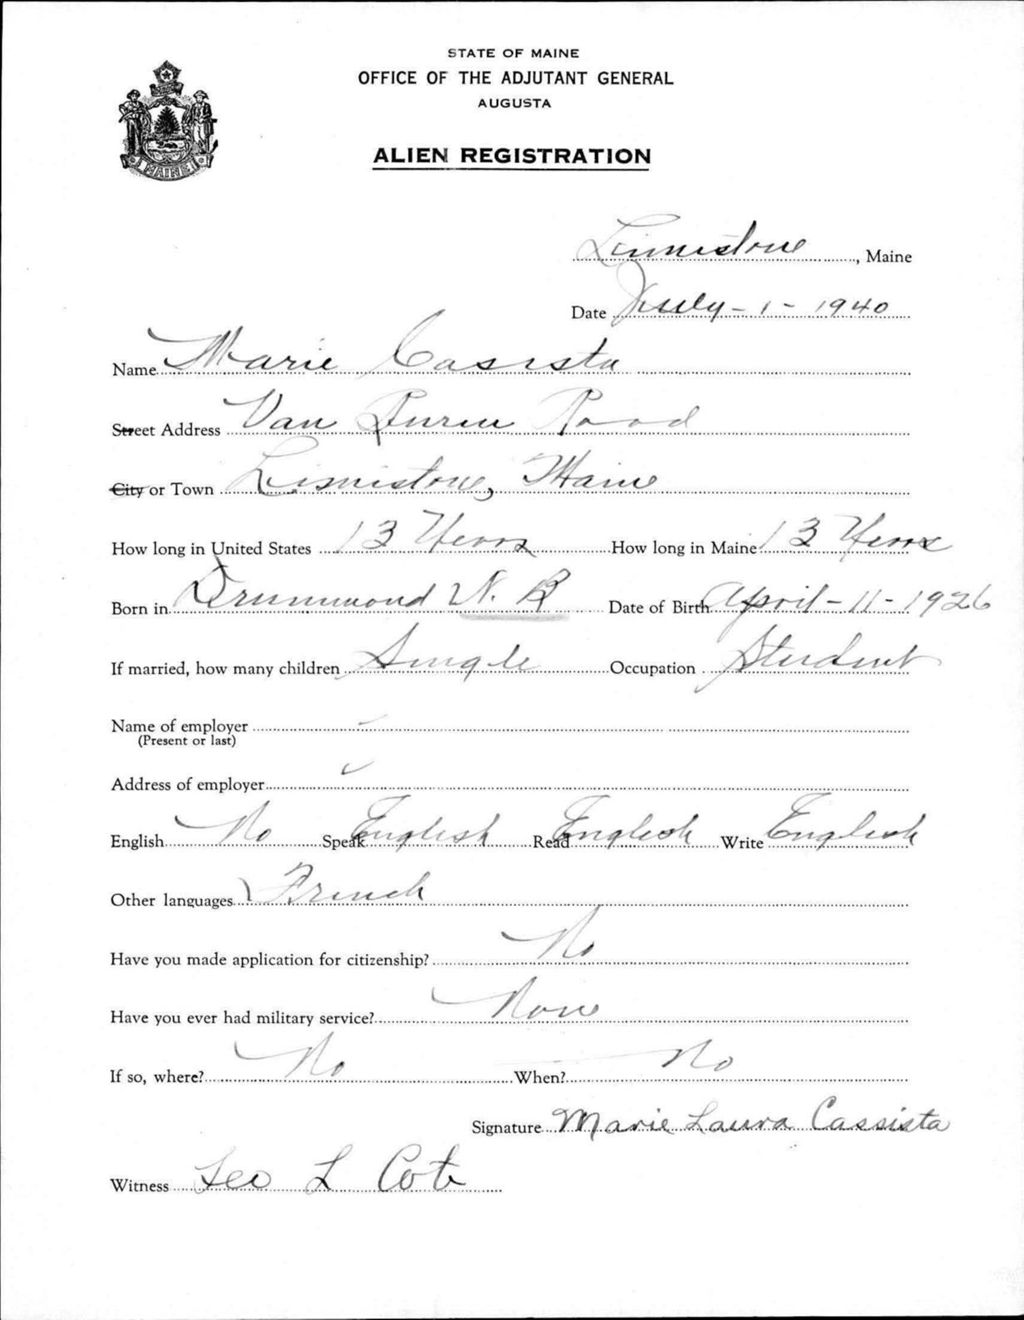 STATE OF MAINE
OFFICE OF THE ADJUTANT GENERAL
AUGUSTA
MAINE
ALIEN REGISTRATION
Limistone, Maine
Date July-1-1940
Name Marie Casista
Street Address Van Buren Road
City or Town Limistone, Maine
How long in United States 13 Years How long in Maine 13 Years
Born in Drummond N. B Date of Birth April-11-1926
If married, how many children Single Occupation Student
Name of employer
(Present or last)
Address of employer
English No Speak English Read English Write English
Other languages French
Have you made application for citizenship? No
Have you ever had military service? None
If so, where? No When? No
Signature Marie Laura Cassista
Witness Leo L Cote